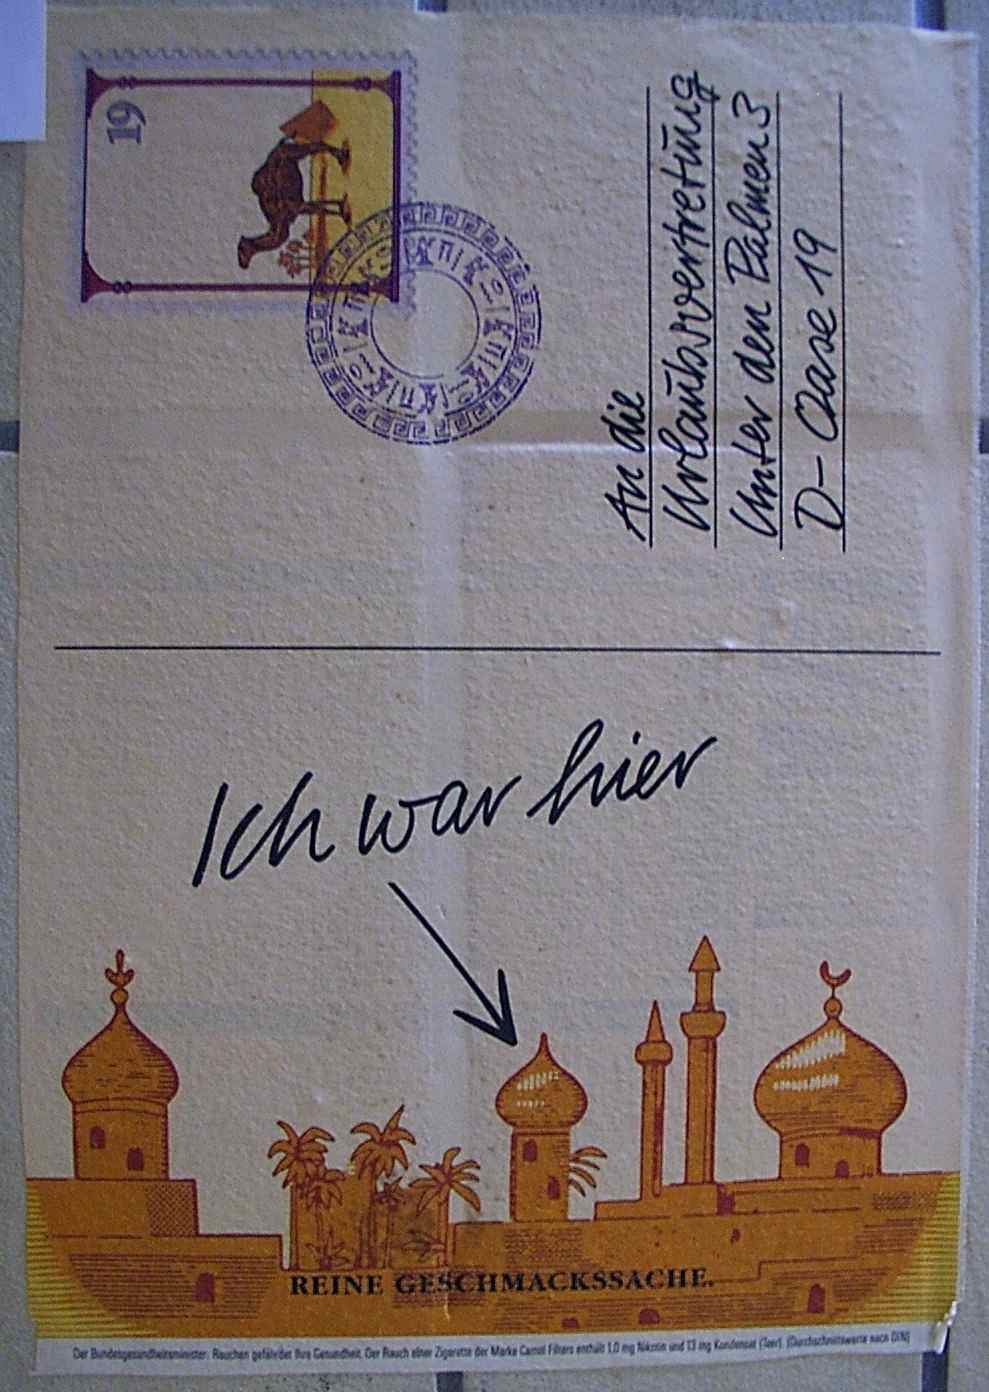 19
An die
Urlaubsvertretung
Unter den Palmen 3
D-Oase 19
Ich war hier
REINE GESCHMACKSSACHE.
Der Bundesgesundheitsminister: Rauchen gefährdet Ihre Gesundheit. Der Rauch einer Zigarette der Marke Camel Filters enthält 1,0 mg Nikotin und 13 mg Kondensat (Teer). (Durchschnittswerte nach DIN)